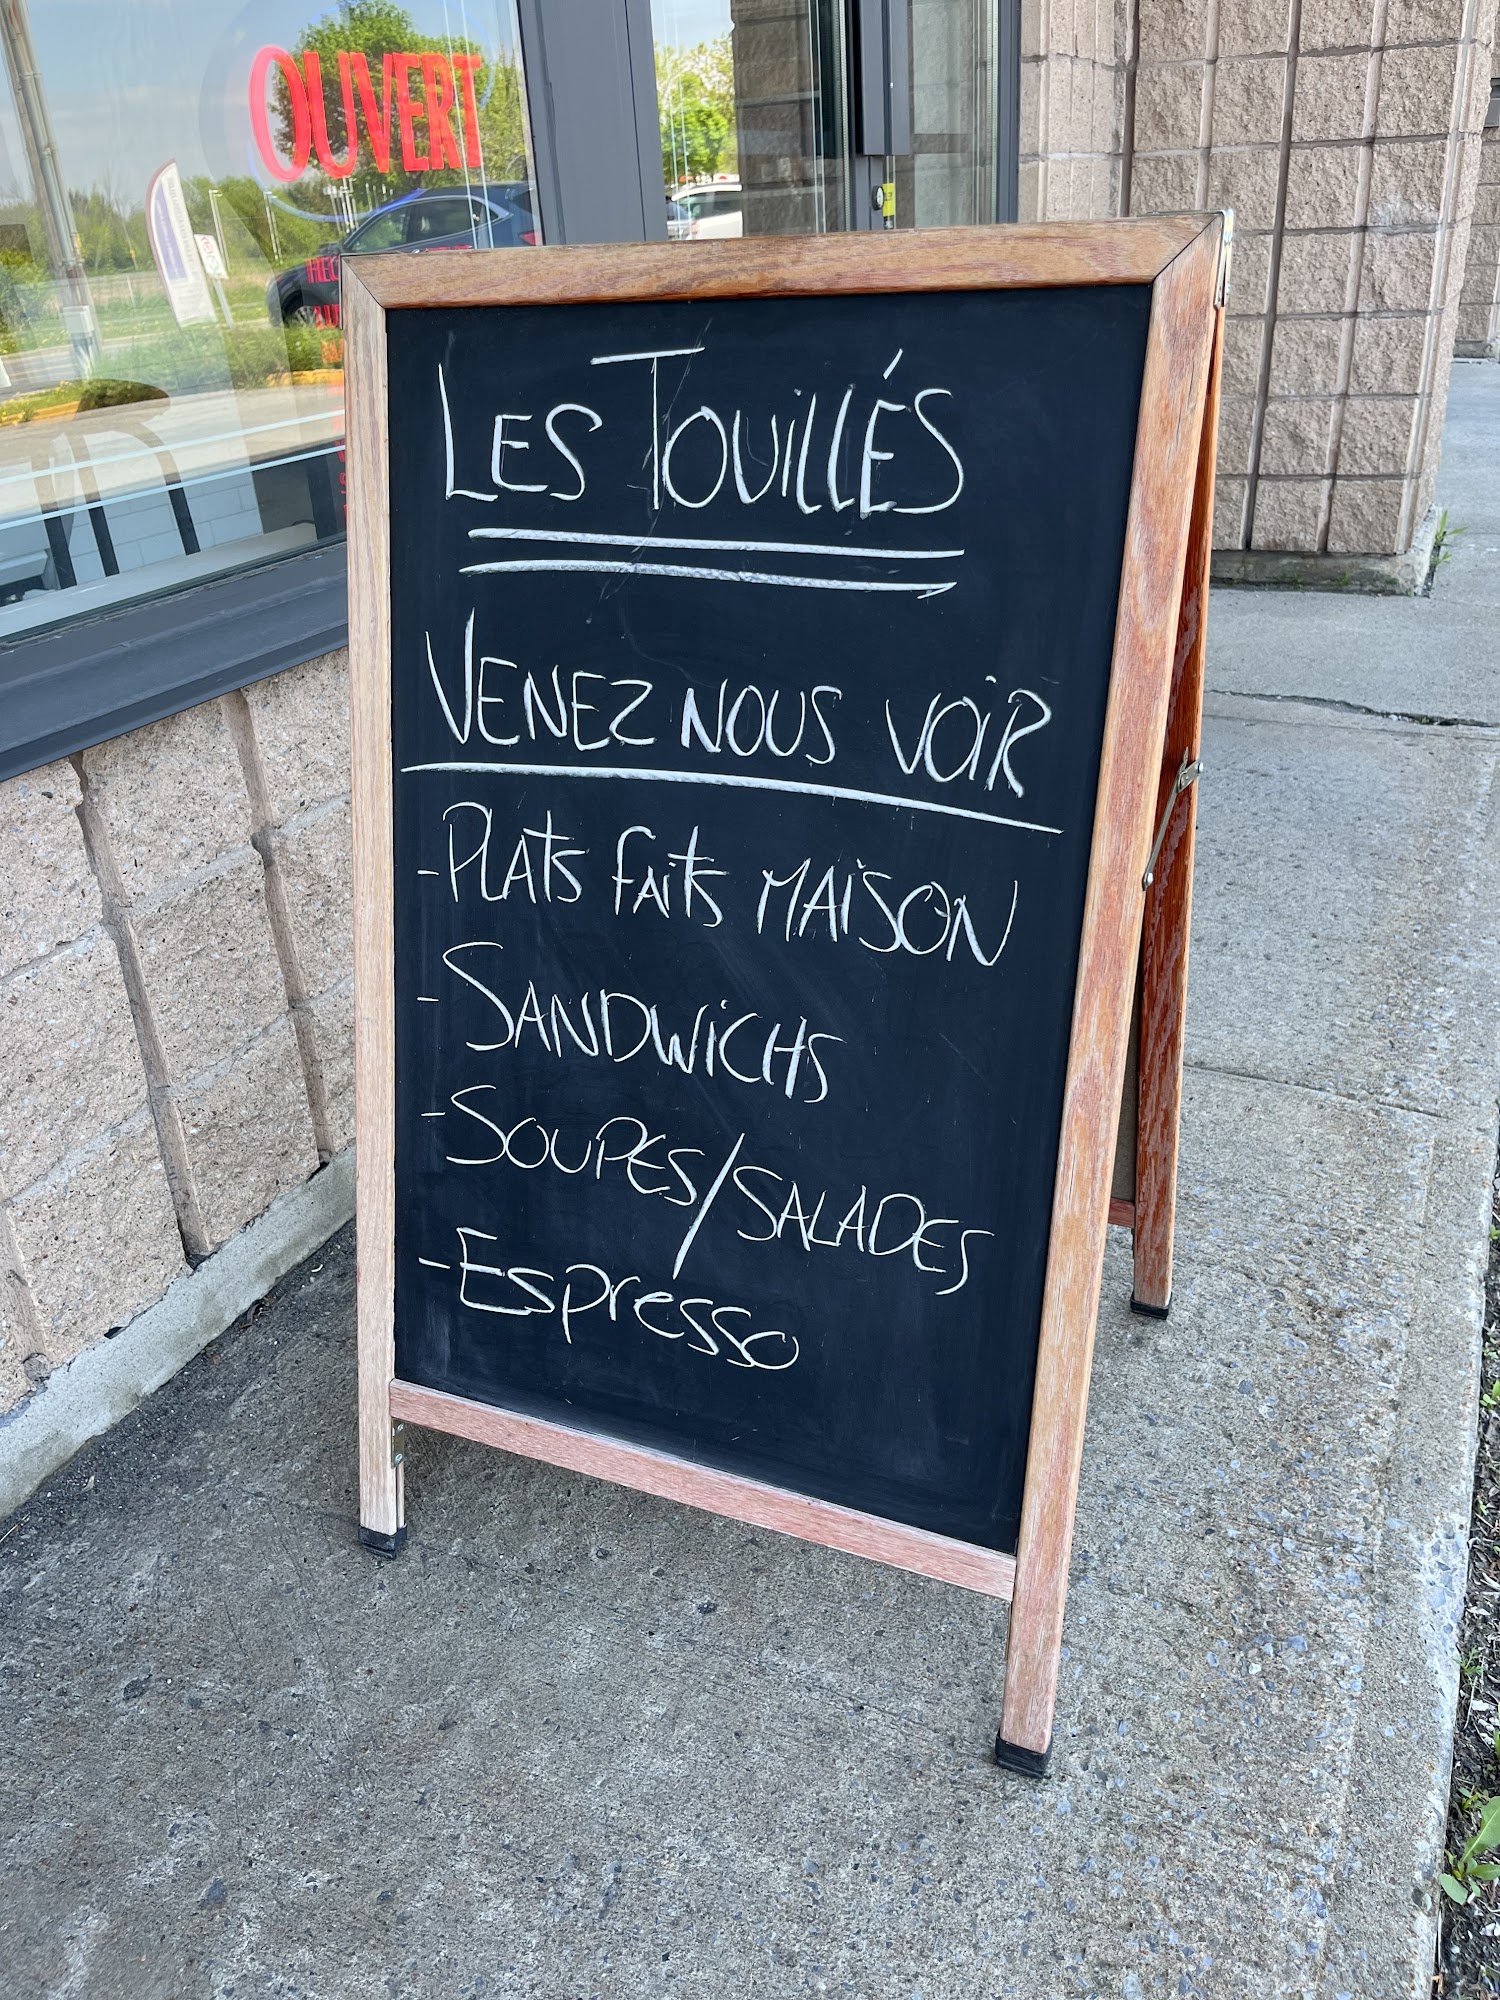 OUVERT
LES TOUILLÉS
VENEZ NOUS VOIR
-PLATS FAITS MAISON
-SANDWICHS
-SOUPES/SALADES
-Espresso